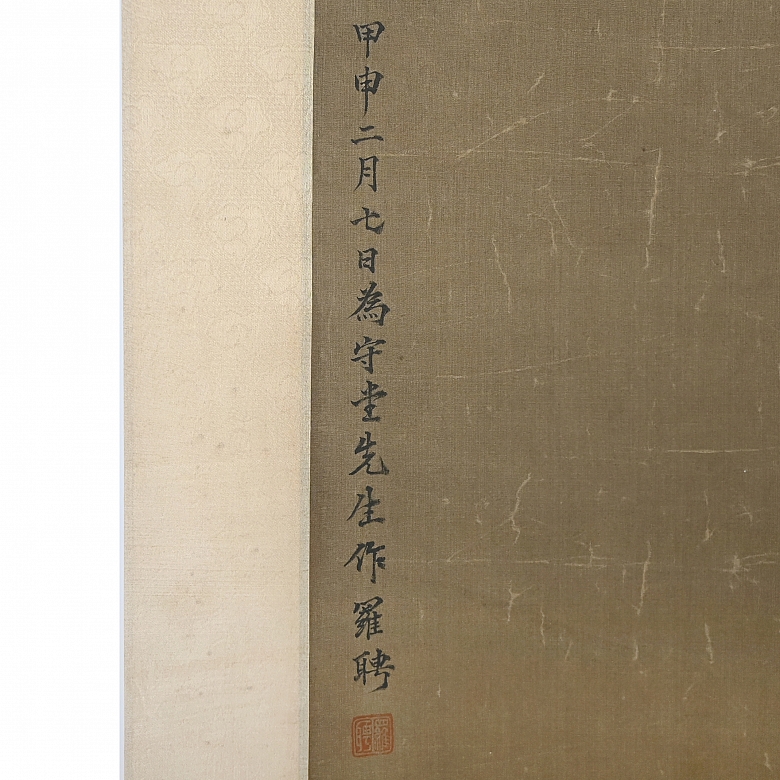 甲申二月七日為守堂先生作羅聘
羅聘